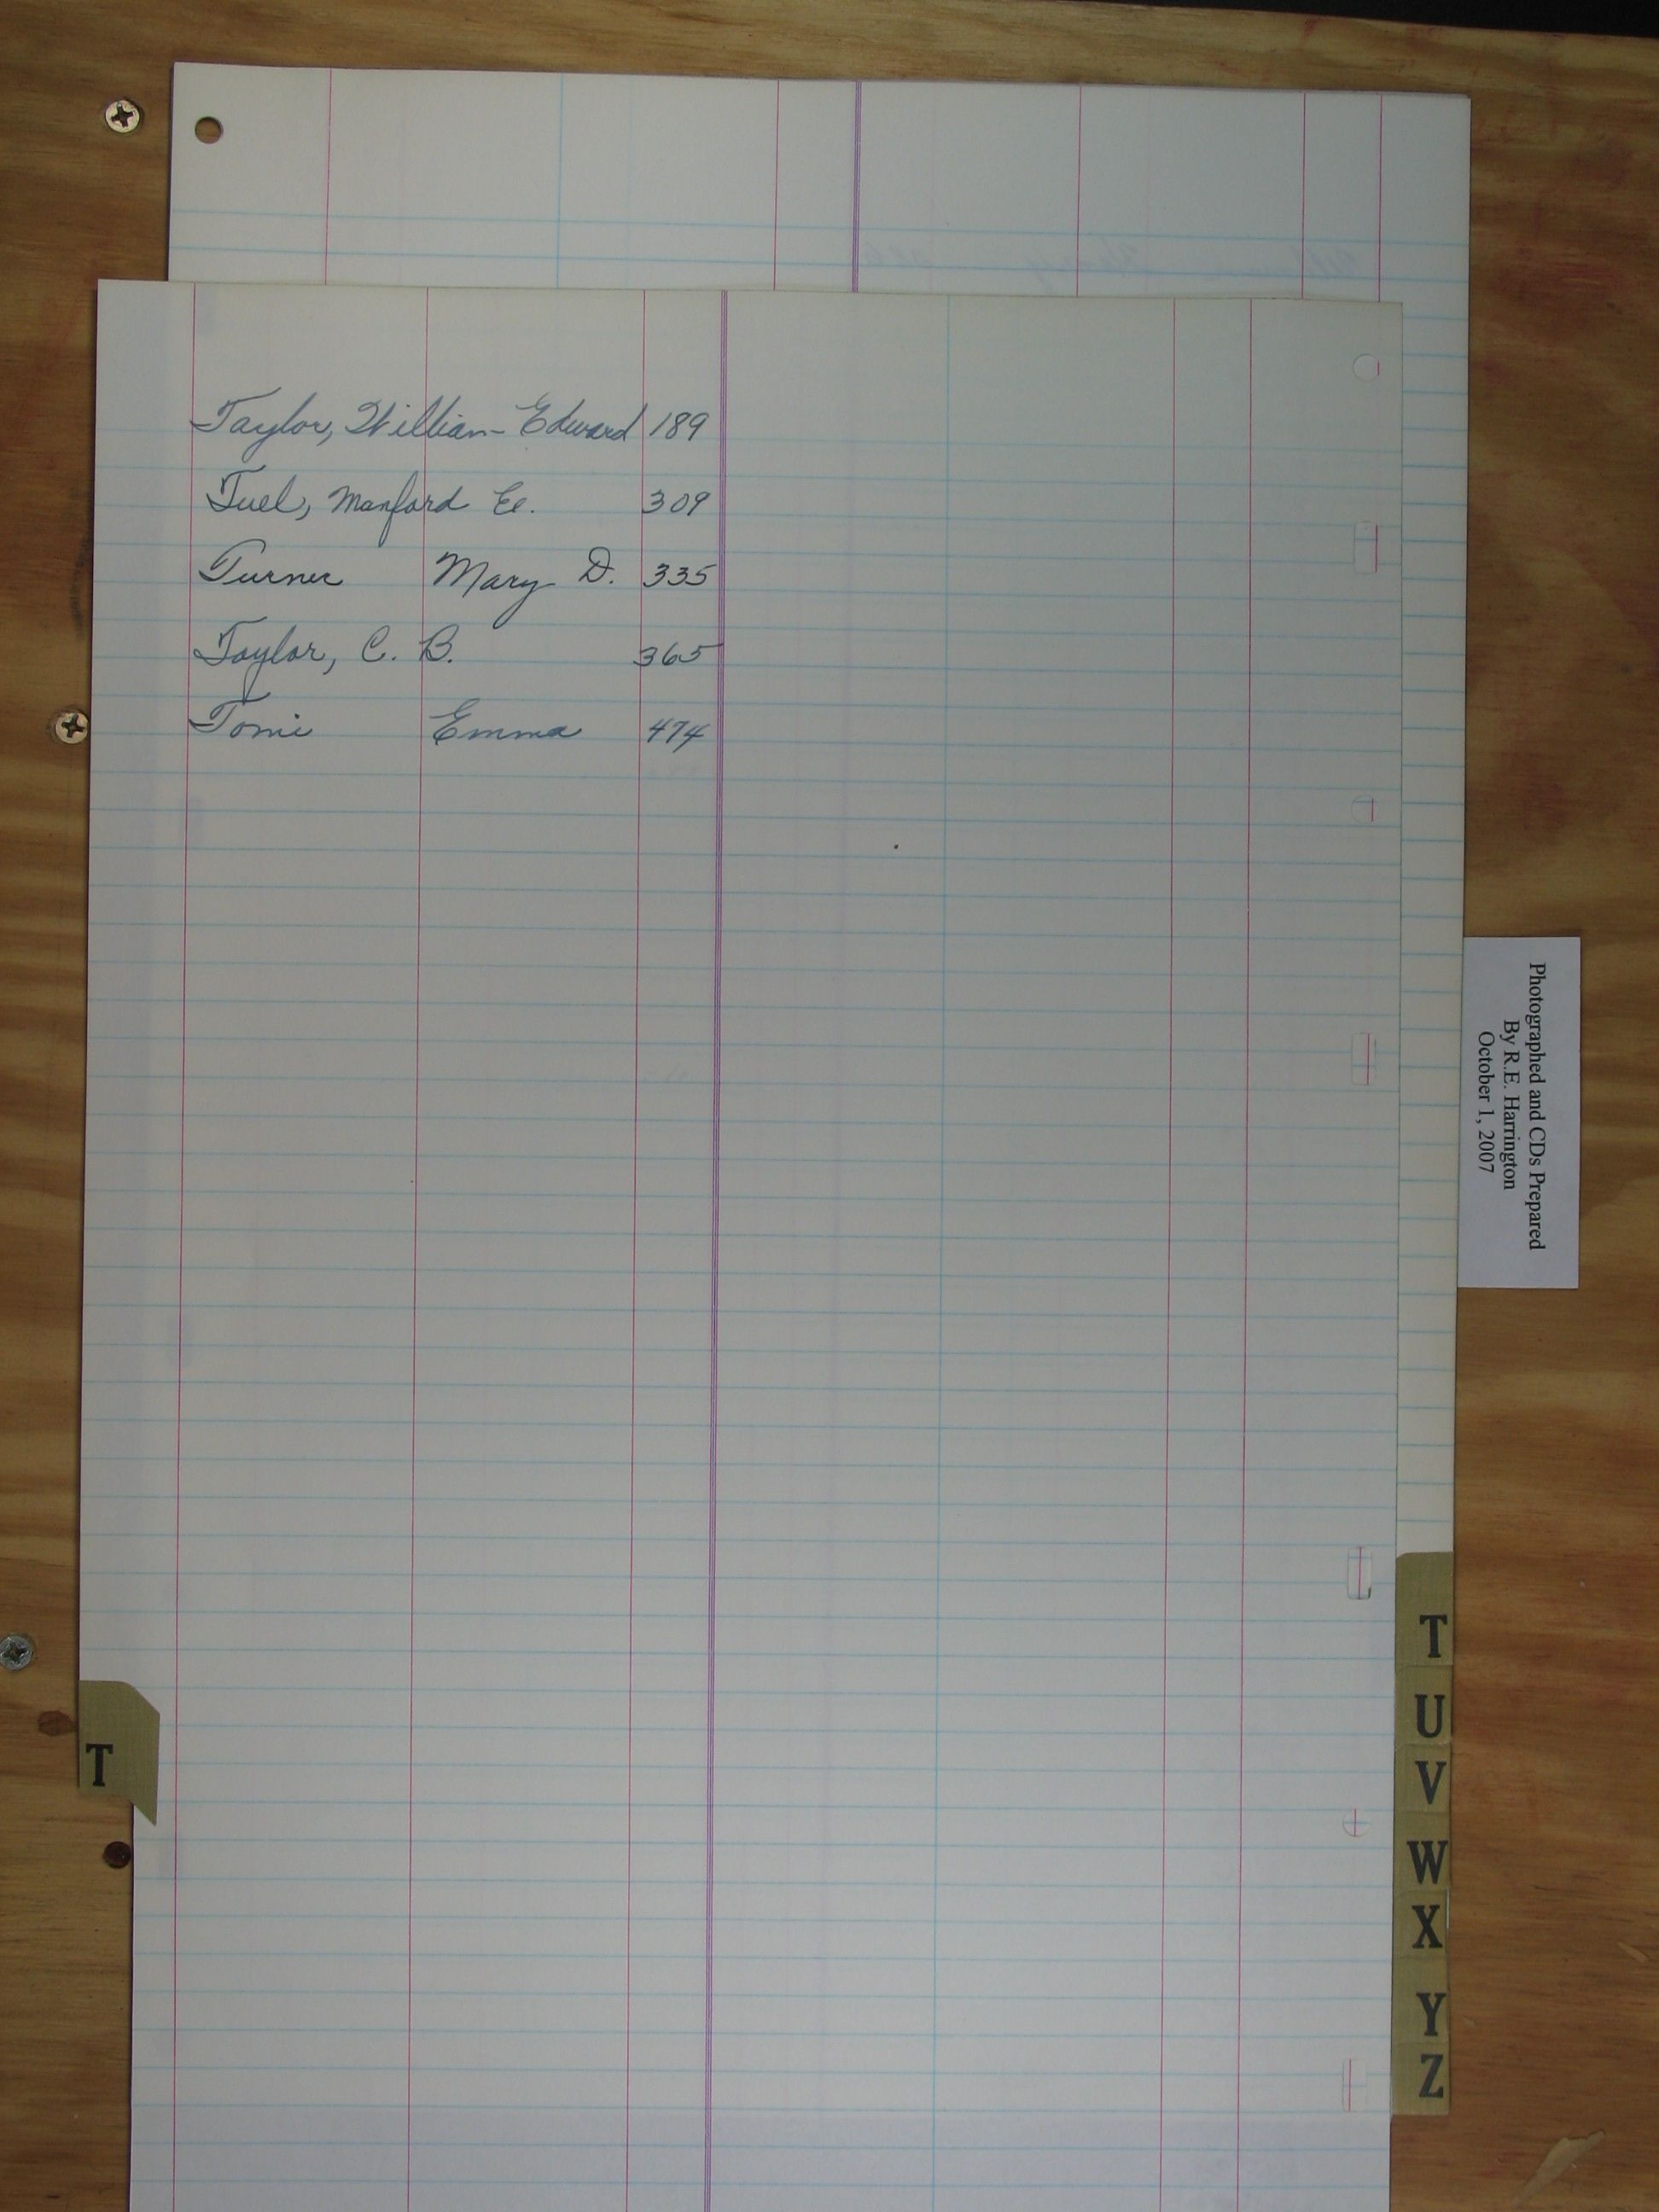 Taylor, William Edward 189
Tuel, Manford E. 309
Turner Mary D. 335
Taylor, C. B. 365
Tomi Emma 474
Photographed and CDs Prepared
By R.E. Harrington
October 1, 2007
T
T
U
V
W
X
Y
Z